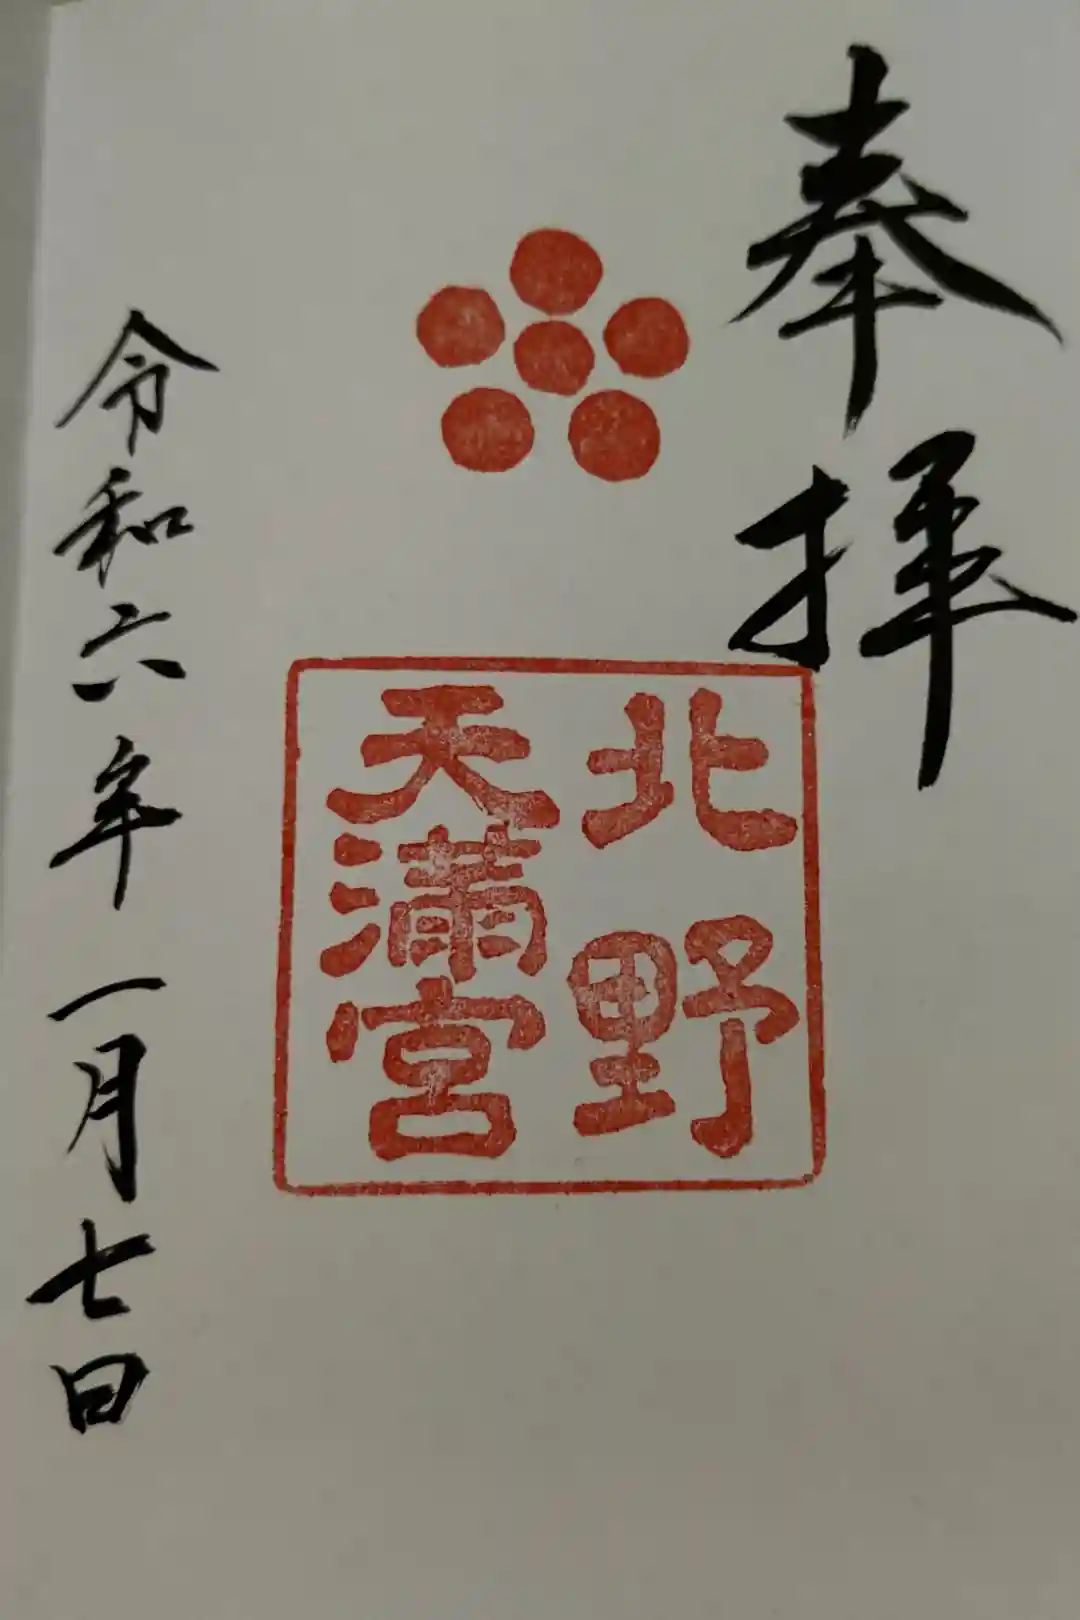 奉拝
北野
天満宮
令和六年一月七日